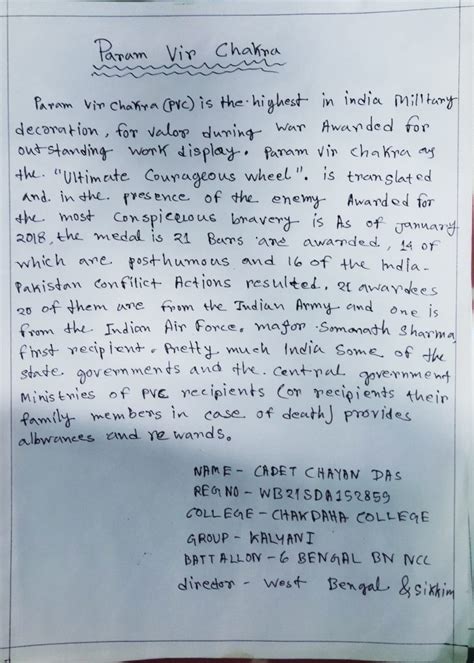 Param Vir Chakra
Param Vir Chakra (PVC) is the highest in india Military
decoration, for valor during war Awarded for
outstanding work display. Param Vir Chakra as
the "Ultimate Courageous wheel". is translated
and. in the presence of the enemy Awarded for
the most conspicuous bravery is As of january
2018, the medal is 21 Bars are awarded, 14 of
which are posthumous and 16 of the India-
Pakistan conflict Actions resulted. 21 awardees
20 of them are from the Indian Army and one is
from the Indian Air Force. major Somanath Sharma
first recipient. Pretty much India some of the
state governments and the central government
Ministries of PVC recipients (or recipients their
family members in case of death) provides
allowances and rewards.
NAME - CADET CHAYAN DAS
REG NO - WB21SDA152859
COLLEGE - CHAKDAHA COLLEGE
GROUP - KALYANI
BATTALLON - 6 BENGAL BN NCC
director - West Bengal & Sikkim